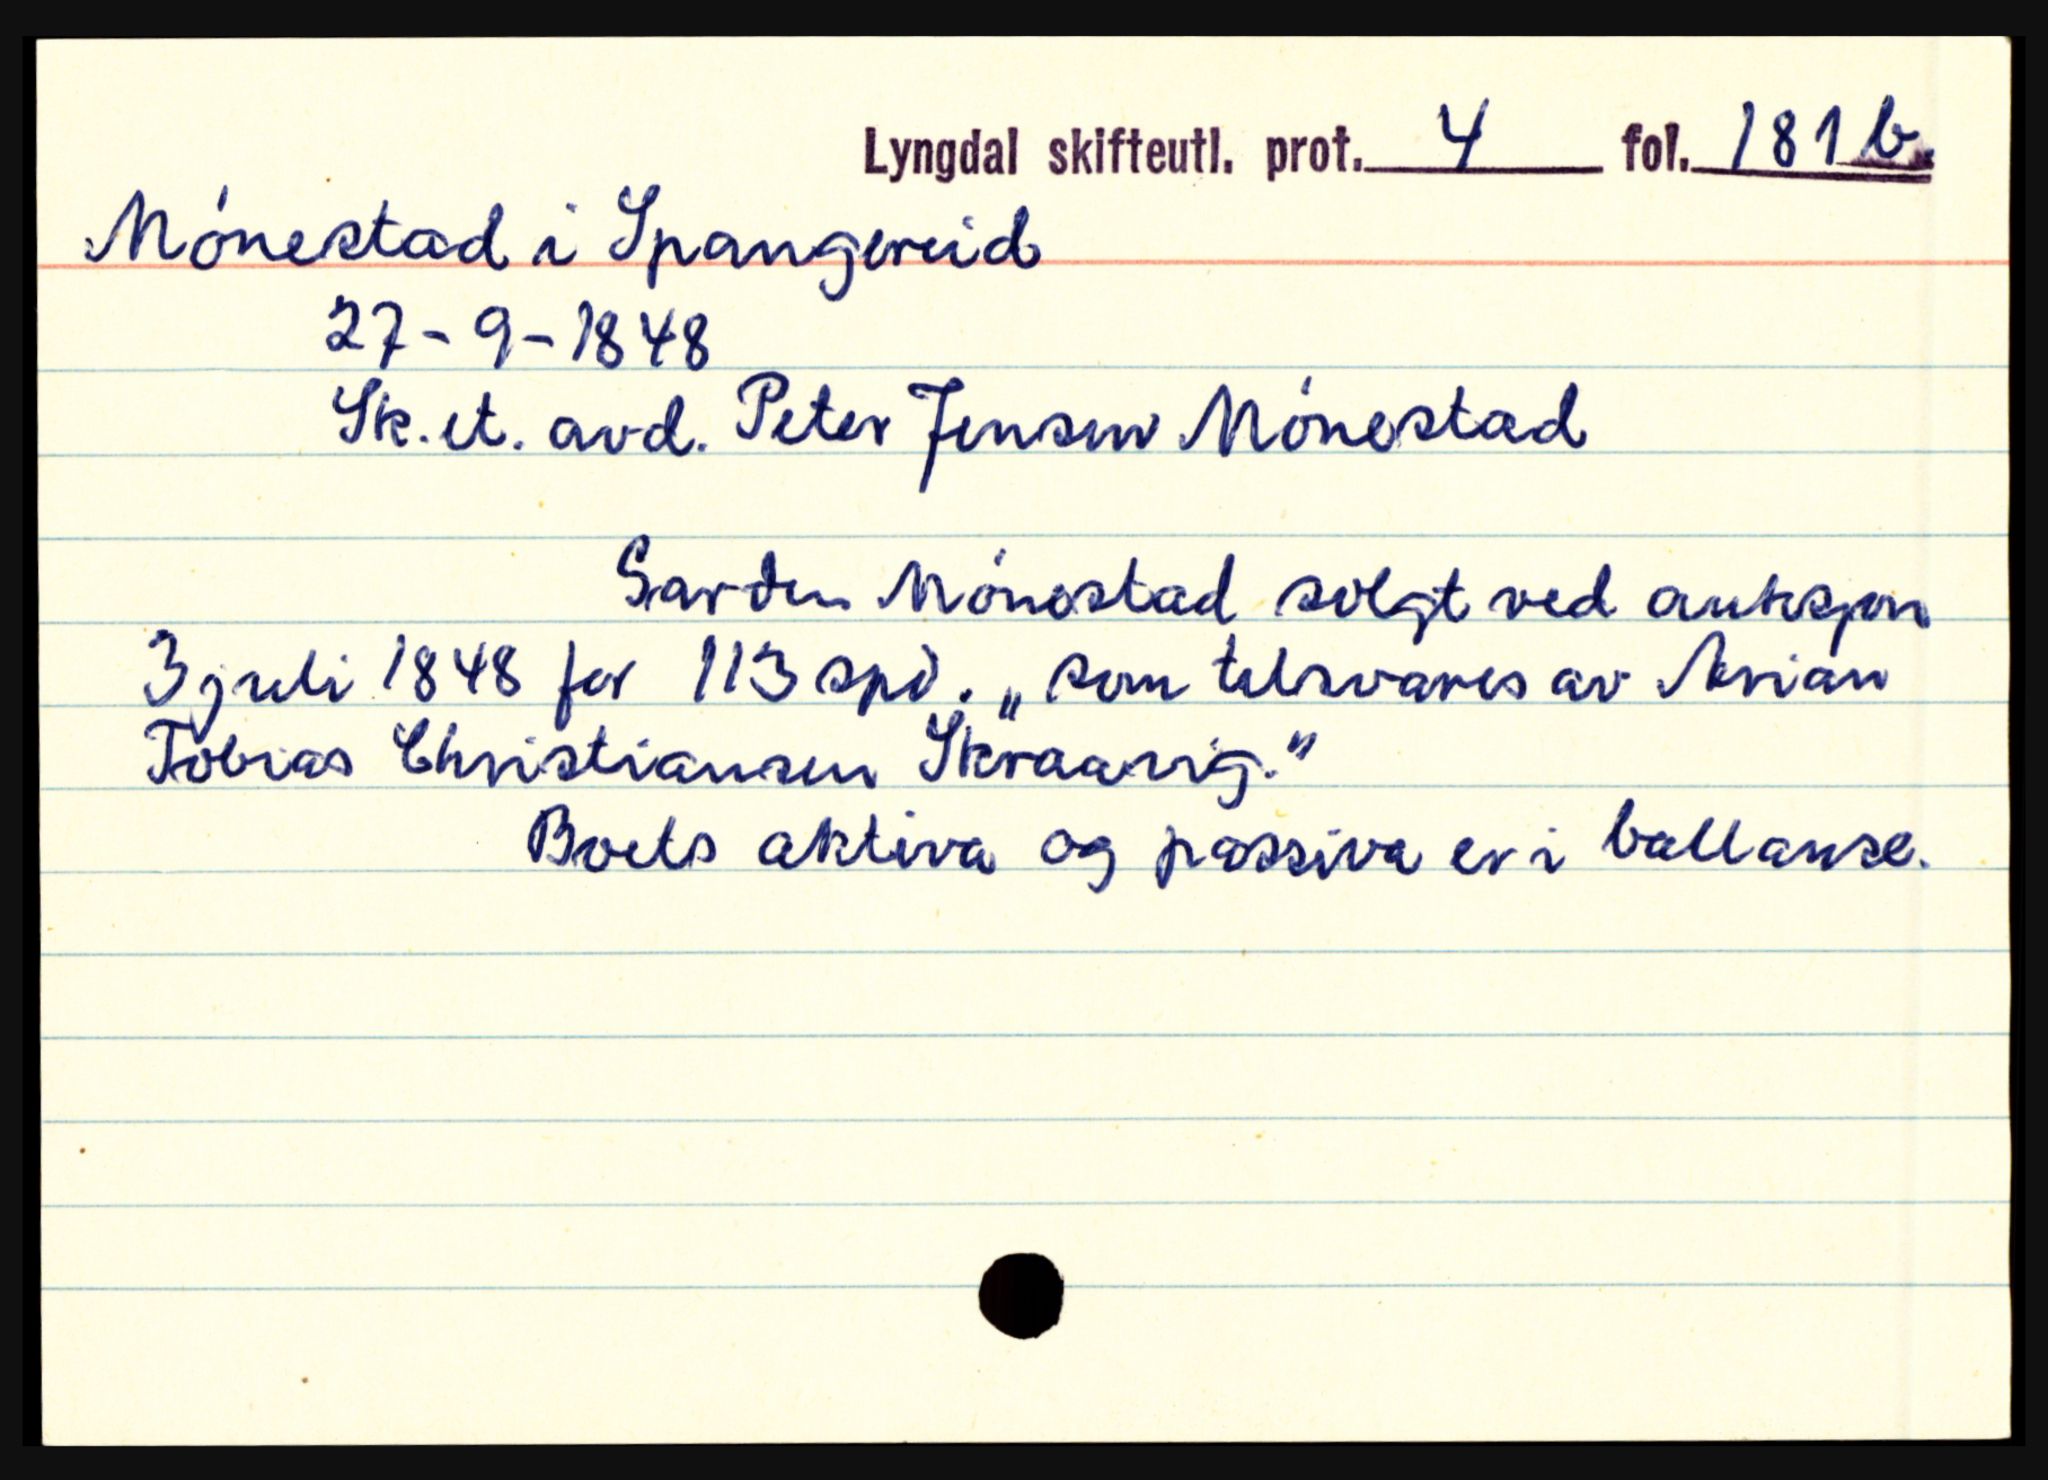 Lyngdal skifteutl. prot. 4 fol. 181 b.
Mónestad i Spangereid
27-9-1848
Sk. et. avd. Peter Jensen Mónestad
Garden Mónestad solgt ved auksjon
3 juli 1848 for 113 spd. „som tilsvares av Arian
Tobias Christiansen Skraavig."
Boets aktiva og passiva er i ballanse.